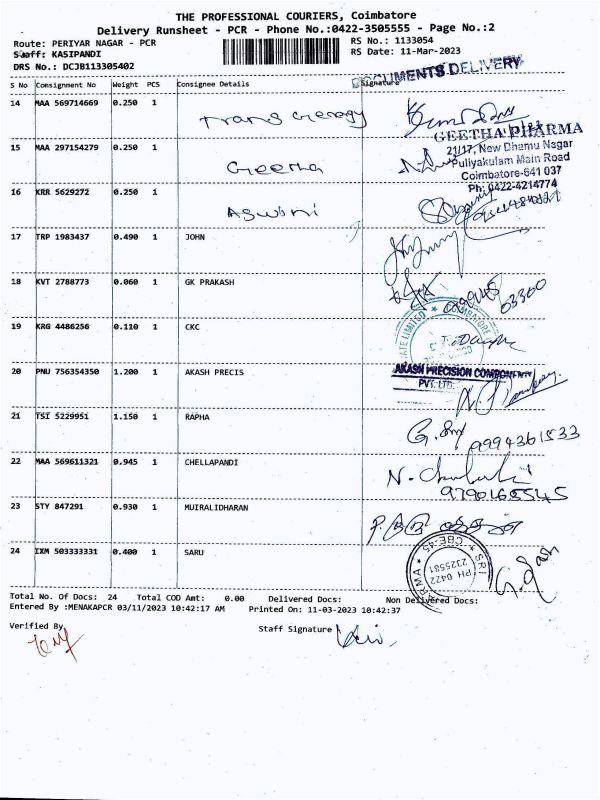 THE PROFESSIONAL COURIERS, Coimbatore
Delivery Runsheet - PCR - Phone No.:0422-3505555 - Page No.:2
Route: PERIYAR NAGAR - PCR RS No.: 1133054
Staff: KASIPANDI RS Date: 11-Mar-2023
DRS No.: DCJB113305402
DOCUMENTS DELIVERY
S No Consignment No Weight PCS Consignee Details Signature
14 MAA 569714669 0.250 1
GEETHA PHARMA
15 MAA 297154279 0.250 1 Geetha
21/17, New Dhamu Nagar
Puliyakulam Main Road
Coimbatore-641 037
Ph: 0422-4214774
16 KRR 5629272 0.250 1 Aswini
17 TRP 1983437 0.490 1 JOHN
18 KVT 2788773 0.060 1 GK PRAKASH
19 KRG 4486256 0.110 1 CKC
20 PNU 756354350 1.200 1 AKASH PRECIS
AKASH PRECISION COMPONENTS
PVT. LTD.
21 TSI 5229951 1.150 1 RAPHA
9994361533
22 MAA 569611321 0.945 1 CHELLAPANDI
9790165545
23 STY 847291 0.930 1 MUIRALIDHARAN
24 IXM 503333331 0.400 1 SARU
CBE-45
SRI
PH 0422
2325581
Total No. Of Docs: 24 Total COD Amt: 0.00 Delivered Docs: Non Delivered Docs:
Entered By :MENAKAPCR 03/11/2023 10:42:17 AM Printed On: 11-03-2023 10:42:37
Verified By Staff Signature